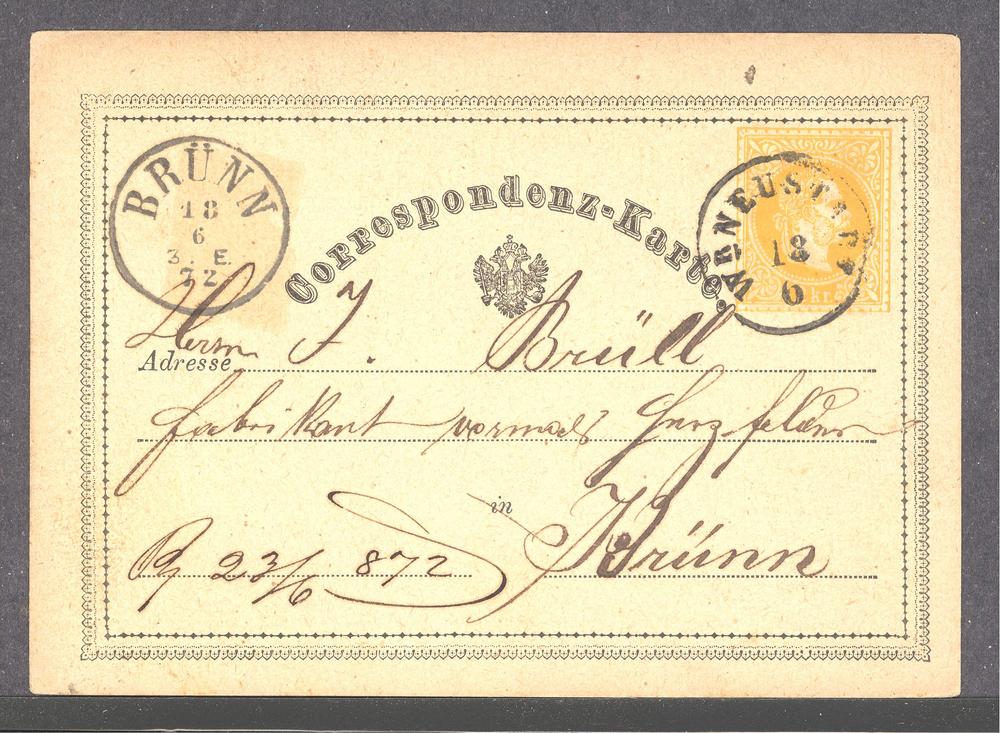 BRÜNN
18
6
3. E.
72
Correspondenz-Karte.
WR NEUSTADT
18
6
kr
Herrn J. Brüll
Adresse
Fabrikant vormals Herzfelder
in Brünn
23/6 872